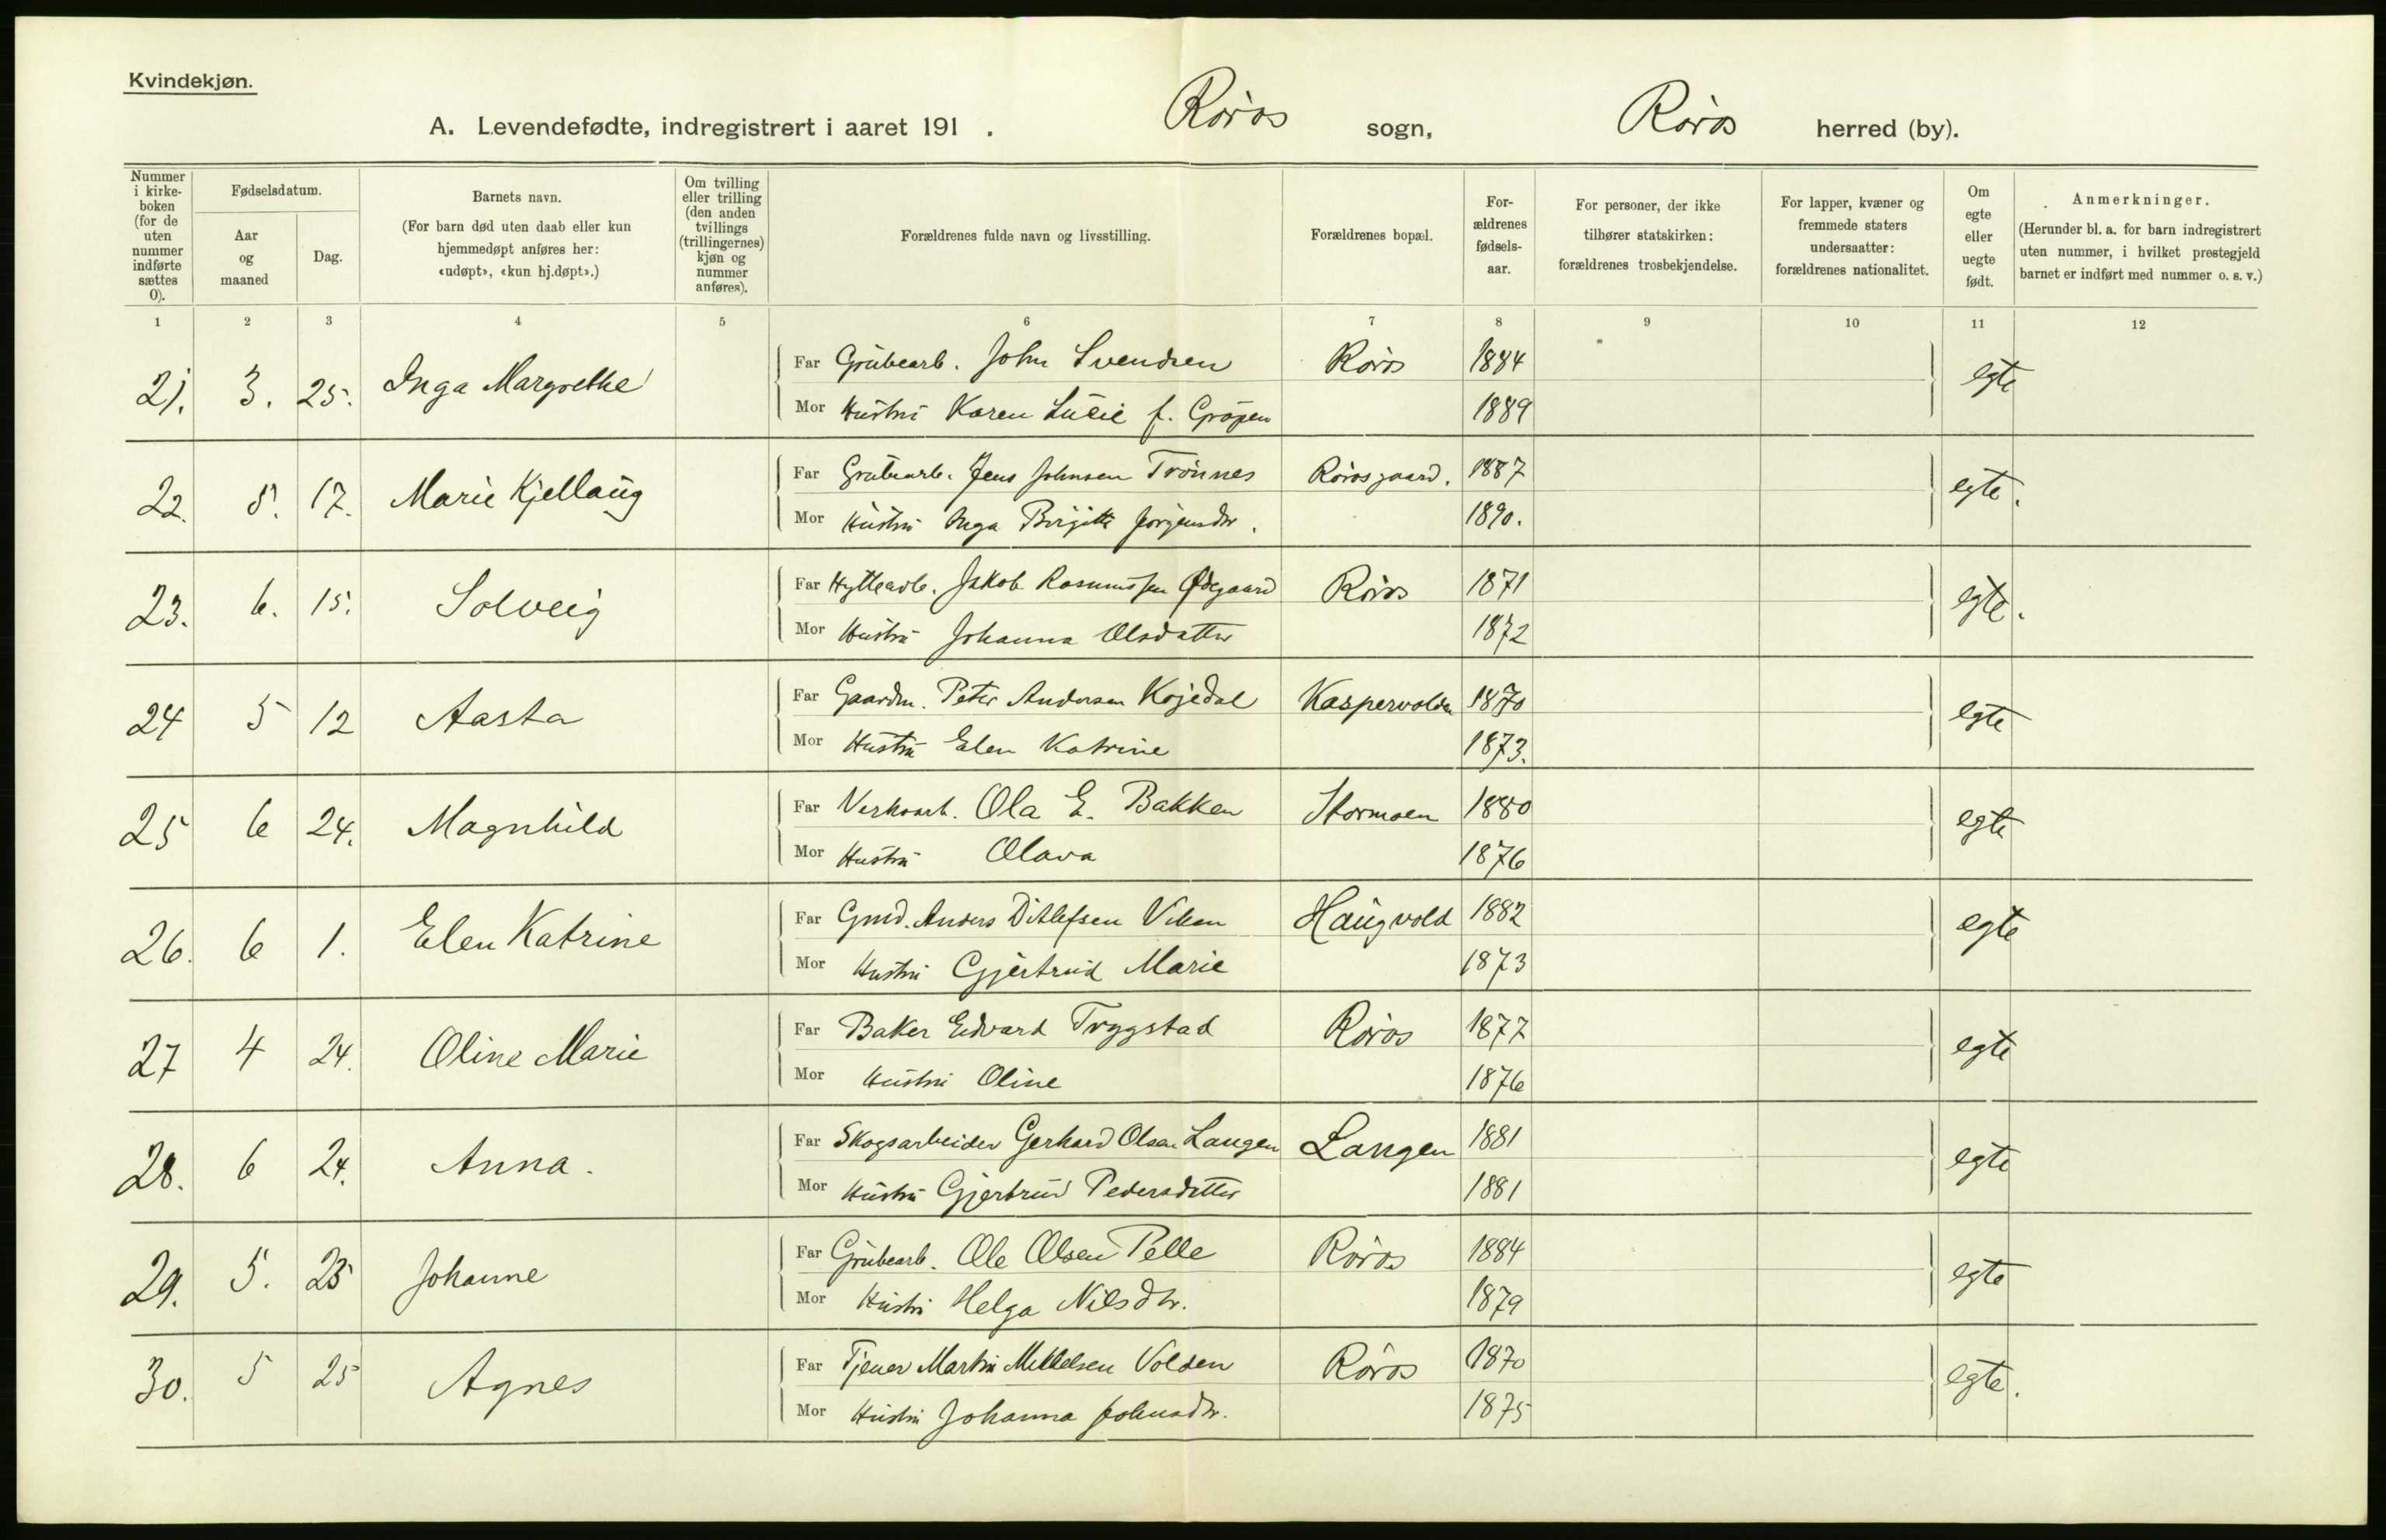 Kvindekjøn.
A. Levendefødte, indregistrert i aaret 191 . Røros sogn, Røros herred (by).
Nummer i kirke-boken (for de uten nummer indførte sættes 0).
Fødselsdatum.
Aar og maaned
Dag.
Barnets navn.
(For barn død uten daab eller kun hjemmedøpt anføres her: «udøpt», «kun hj.døpt».)
Om tvilling eller trilling (den anden tvillings (trillingernes) kjøn og nummer anføres).
Forældrenes fulde navn og livsstilling.
Forældrenes bopæl.
For-ældrenes fødsels-aar.
For personer, der ikke tilhører statskirken: forældrenes trosbekjendelse.
For lapper, kvæner og fremmede staters undersaatter: forældrenes nationalitet.
Om egte eller uegte født.
Anmerkninger.
(Herunder bl. a. for barn indregistrert uten nummer, i hvilket prestegjeld barnet er indført med nummer o. s. v.)
1 2 3 4 5 6 7 8 9 10 11 12
21. 3. 25. Inga Margrethe Far Grubearb. John Svendsen Røros 1884 egte
Mor Hustru Karen Lucie f. 1889
22. 5. 17. Marie Kjellaug Far Grubearb. Jens Johnsen Trønnes Rørosgaard. 1887 egte.
Mor Hustru Inga Birgitte Jørgensdtr. 1890.
23. 6. 15. Solveig Far Hyttearb. Jakob Rasmussen Ødegaard Røros 1871 egte.
Mor Hustru Johanna Olsdatter 1872
24 5 12 Aasta Far Gaardm. Peter Andersen Kojedal Kaspervolden 1870 egte
Mor Hustru Elen Katrine 1873.
25 6 24. Magnhild Far Verksarb. Ola E. Bakken Stormoen 1880 egte
Mor Hustru Olava 1876
26. 6 1. Elen Katrine Far Gmd. Anders Ditlefsen Viken Haugvold 1882 egte
Mor Hustru Gjertrud Marie 1873
27 4 24. Oline Marie Far Baker Edvard Trygstad Røros 1877 egte
Mor Hustru Oline 1876
28. 6 24. Anna. Far Skogsarbeider Gerhard Olsen Langen Langen 1881 egte
Mor Hustru Gjertrud Pedersdatter 1881
29. 5. 23 Johanne Far Grubearb. Ole Olsen Pelle Røros 1884 egte
Mor Hustru Helga Nilsdtr. 1879
30. 5 25 Agnes Far Tjener Martin Mikkelsen Volden Røros 1870 egte.
Mor Hustru Johanna Johnsdtr. 1875